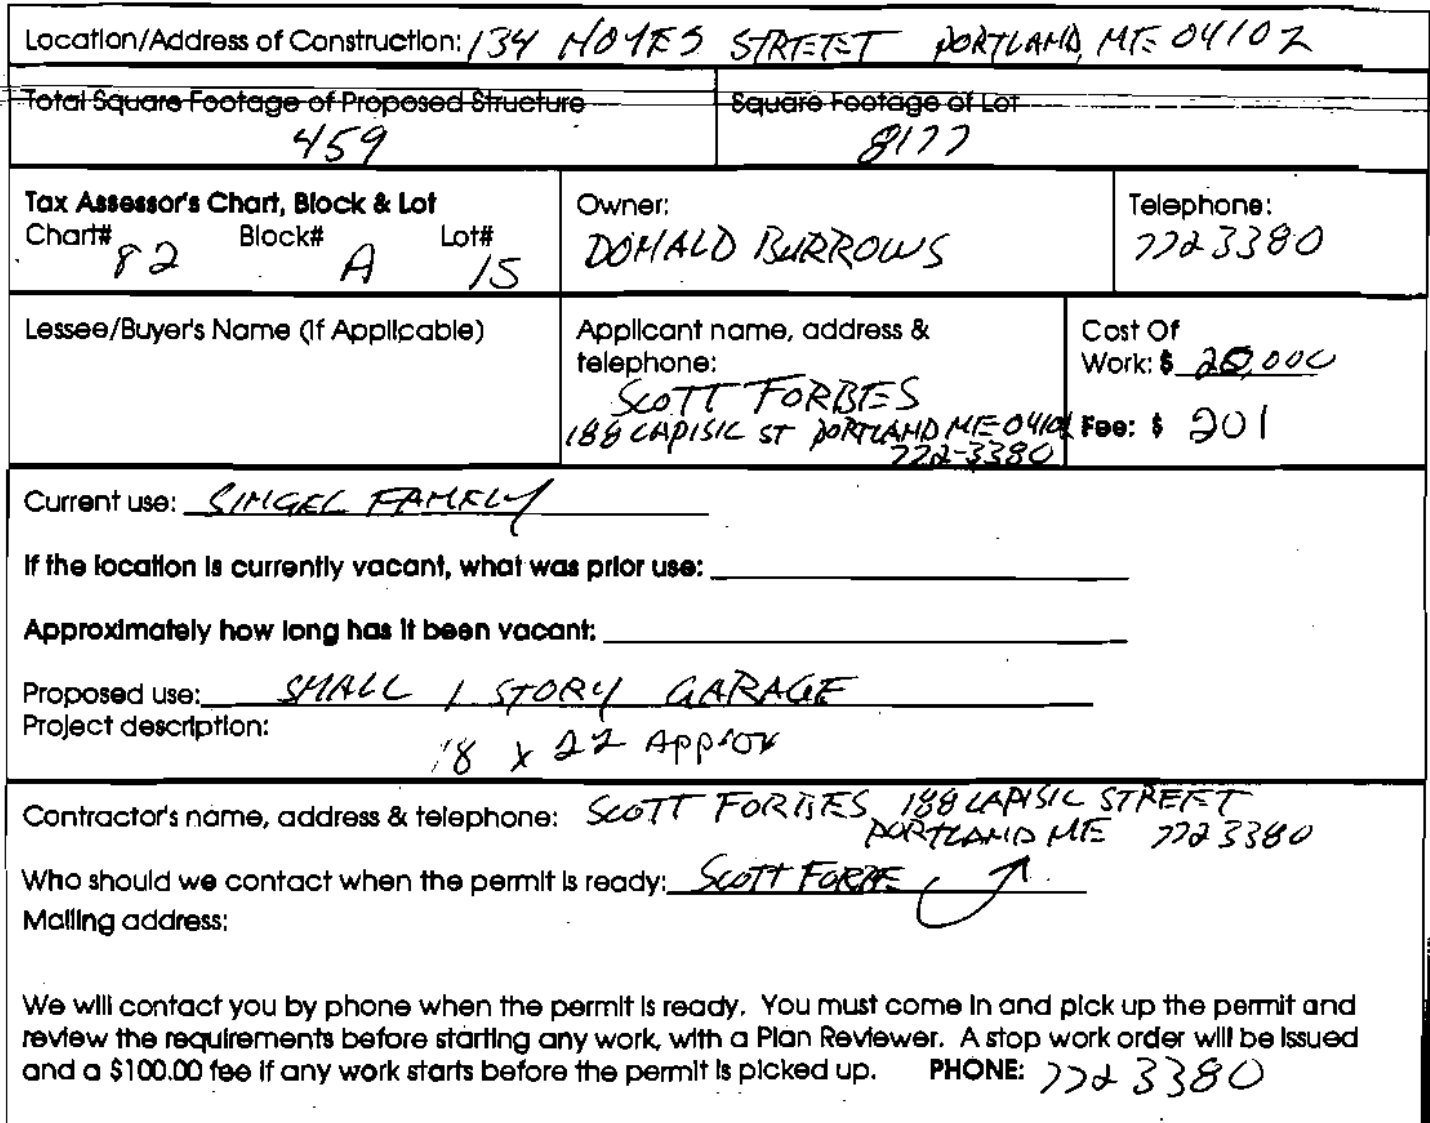 Location/Address of Construction: 134 NOYES STREET PORTLAND, ME 04102
Total Square Footage of Proposed Structure Square Footage of Lot
459 8177
Tax Assessor's Chart, Block & Lot Owner: Telephone:
Chart# 82 Block# A Lot# 15 DONALD BURROWS 772 3380
Lessee/Buyer's Name (If Applicable) Applicant name, address & telephone: Cost Of Work: $ 20,000
SCOTT FORBES
188 CAPISIC ST PORTLAND ME 04102 Fee: $ 201
772-3380
Current use: SINGEL FAMELY
If the location is currently vacant, what was prior use:
Approximately how long has it been vacant:
Proposed use: SMALL 1 STORY GARAGE
Project description:
18 x 22 Approx
Contractor's name, address & telephone: SCOTT FORBES 188 CAPISIC STREET
PORTLAND ME 772 3380
Who should we contact when the permit is ready: SCOTT FORBE
Mailing address:
We will contact you by phone when the permit is ready. You must come in and pick up the permit and
review the requirements before starting any work, with a Plan Reviewer. A stop work order will be issued
and a $100.00 fee if any work starts before the permit is picked up. PHONE: 772 3380